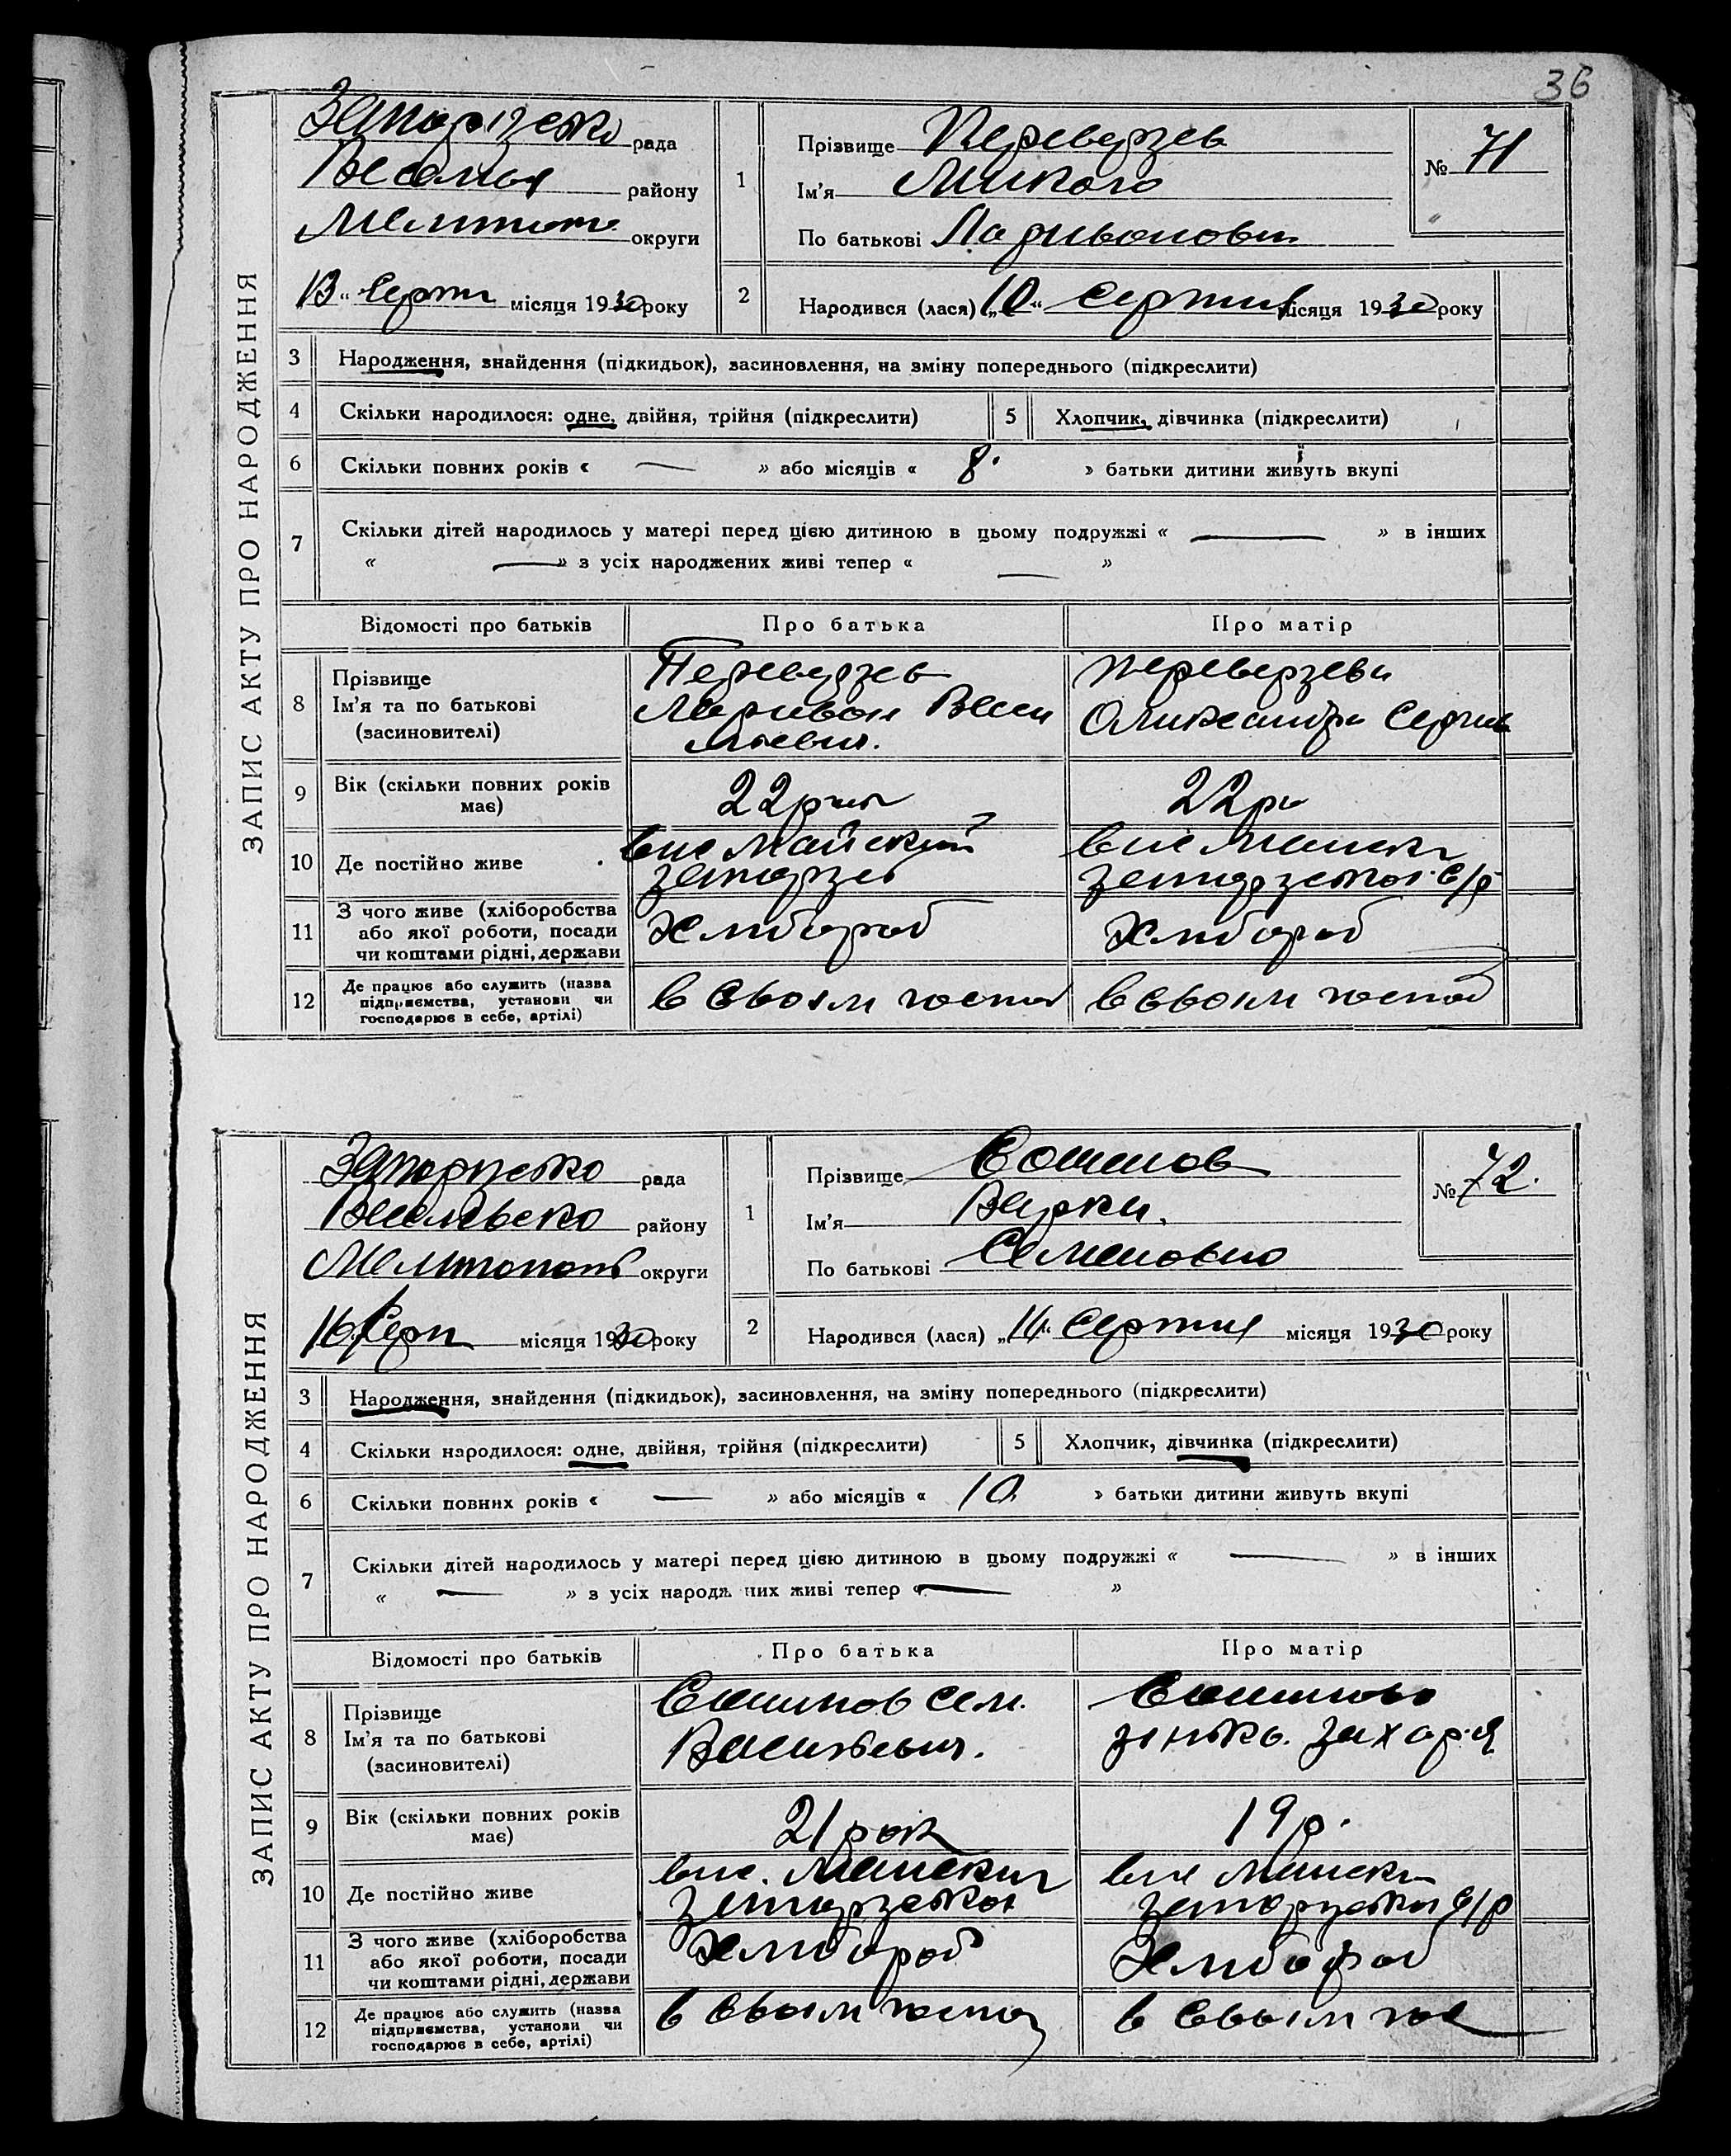 36
ЗАПИС АКТУ ПРО НАРОДЖЕННЯ
рада
району
Мелитоп округи
13 Серпн місяця 1930 року
1
Прізвище Переверзев
Ім'я Микола
По батькові Ларивонович
№ 71
2
Народився (лася) „10“ Серпня місяця 1930 року
3 Народження, знайдення (підкидьок), засиновлення, на зміну попереднього (підкреслити)
4 Скільки народилося: одне, двійня, трійня (підкреслити)
5 Хлопчик, дівчинка (підкреслити)
6 Скільки повних років « — » або місяців « 8. » батьки дитини живуть вкупі
7 Скільки дітей народилось у матері перед цією дитиною в цьому подружжі « — » в інших
« — » з усіх народжених живі тепер « — »
Відомості про батьків
Про батька
Про матір
8 Прізвище
Ім'я та по батькові
(засиновителі)
Переверзев
Ларивон Васи
льевич.
Переверзева
Олександра Сергие
9 Вік (скільки повних років
має)
22 роки
22 ро
10 Де постійно живе
вис Майский
вис Маиски
с/р
11 З чого живе (хліборобства
або якої роботи, посади
чи коштами рідні, держави
Хлибороб
Хлибороб
12 Де працює або служить (назва
підприємства, установи чи
господарює в себе, артілі)
в своїм господ
в своїм господ
ЗАПИС АКТУ ПРО НАРОДЖЕННЯ
рада
району
Мелитополь округи
16 Серпн місяця 1930 року
1
Прізвище
Ім'я Варка.
По батькові Семеновно
№ 72.
2
Народився (лася) „14“ Серпня місяця 1930 року
3 Народження, знайдення (підкидьок), засиновлення, на зміну попереднього (підкреслити)
4 Скільки народилося: одне, двійня, трійня (підкреслити)
5 Хлопчик, дівчинка (підкреслити)
6 Скільки повних років « — » або місяців « 10 » батьки дитини живуть вкупі
7 Скільки дітей народилось у матері перед цією дитиною в цьому подружжі « — » в інших
« — » з усіх народж них живі тепер « — »
Відомості про батьків
Про батька
Про матір
8 Прізвище
Ім'я та по батькові
(засиновителі)
Сем.
Васильевич.
Зінька. Захар.я
9 Вік (скільки повних років
має)
21 рок
19 р.
10 Де постійно живе
вис. Маиский
вис Маиски
с/р
11 З чого живе (хліборобства
або якої роботи, посади
чи коштами рідні, держави
Хлибороб
Хлибороб
12 Де працює або служить (назва
підприємства, установи чи
господарює в себе, артілі)
в своїм госпо
в своїм гос